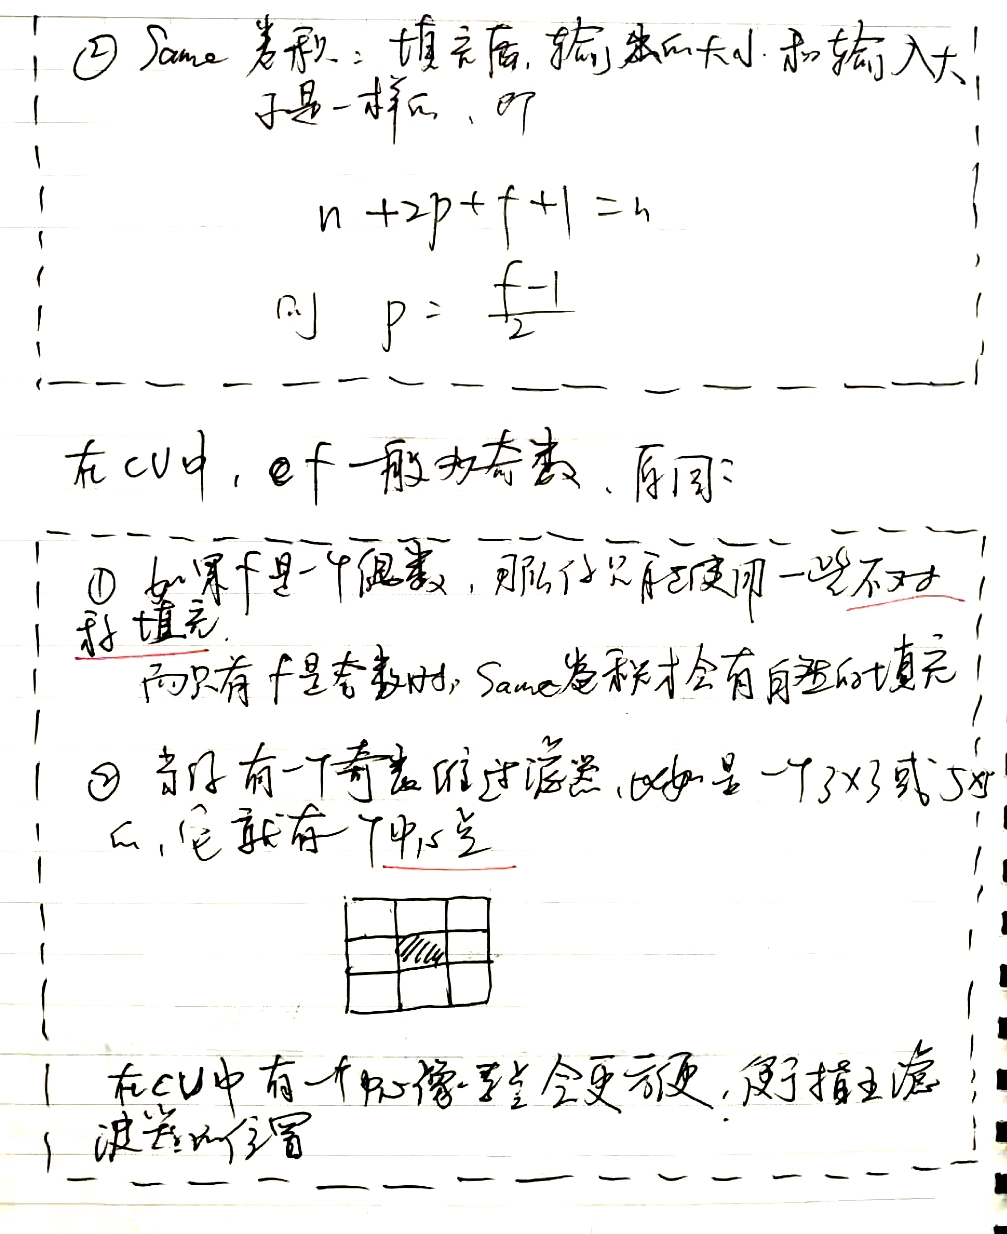 ② Same 卷积：填充后，输出的大小和输入大
小是一样的，即
n + 2p + f + 1 = n
则 p = (f-1)/2
在CV中，f一般为奇数，原因：
① 如果f是一个偶数，那么你只能使用一些不对
称填充.
而只有f是奇数时，Same卷积才会有自然的填充
② 当你有一个奇数维过滤器，比如是一个3×3或5×5
的，它就有一个中心点
在CV中有一个中心像素点会更方便，便于指出滤
波器的位置